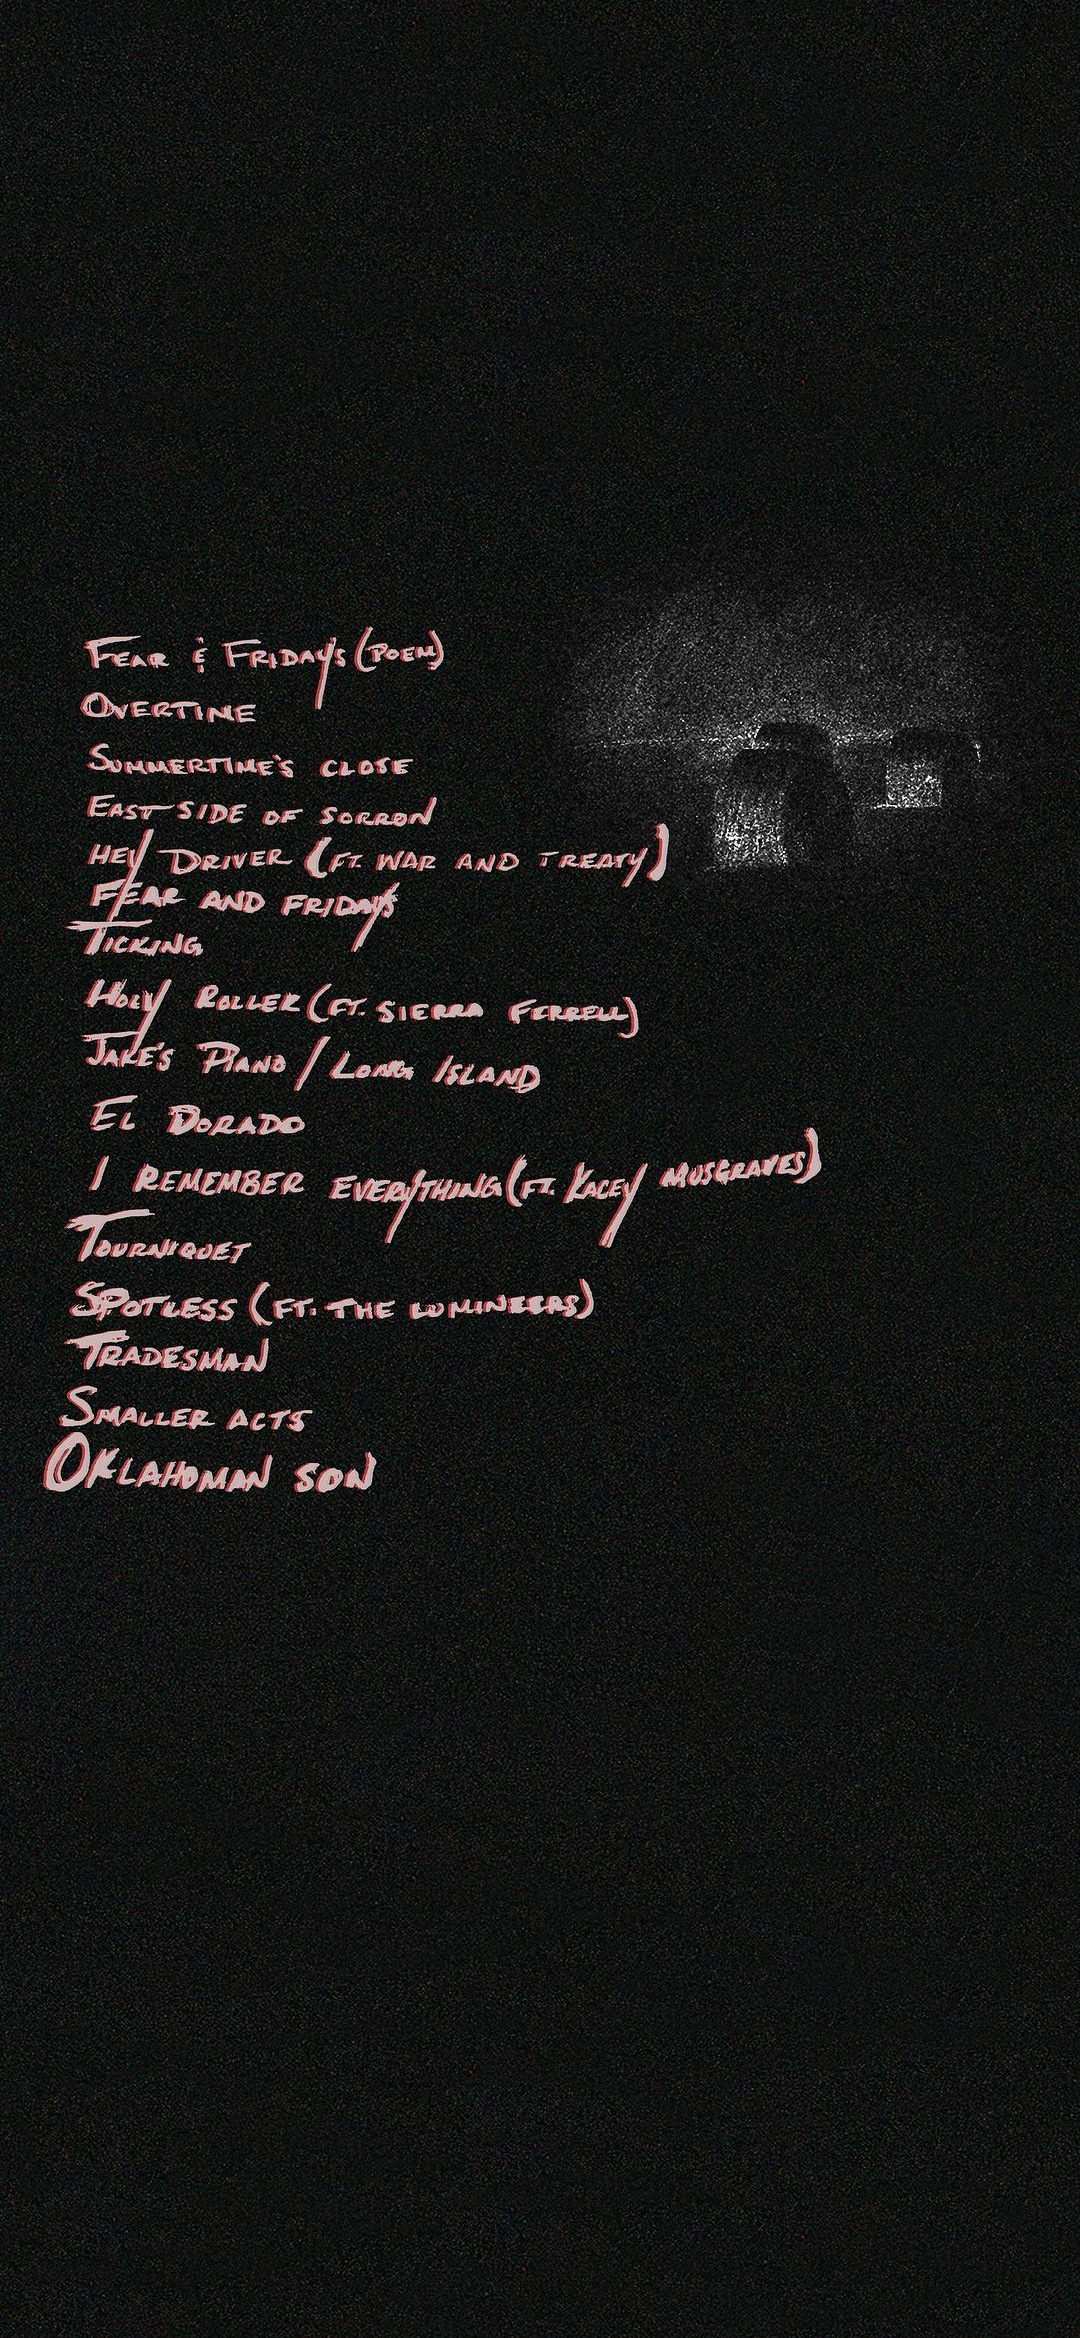 FEAR & FRIDAY'S (POEM)
OVERTIME
SUMMERTIME'S CLOSE
EAST SIDE OF SORROW
HEY DRIVER (FT. WAR AND TREATY)
FEAR AND FRIDAYS
TICKING
HOLY ROLLER (FT. SIERRA FERRELL)
JAKE'S PIANO / LONG ISLAND
EL DORADO
I REMEMBER EVERYTHING (FT. KACEY MUSGRAVES)
TOURNIQUET
SPOTLESS (FT. THE LUMINEERS)
TRADESMAN
SMALLER ACTS
OKLAHOMAN SON